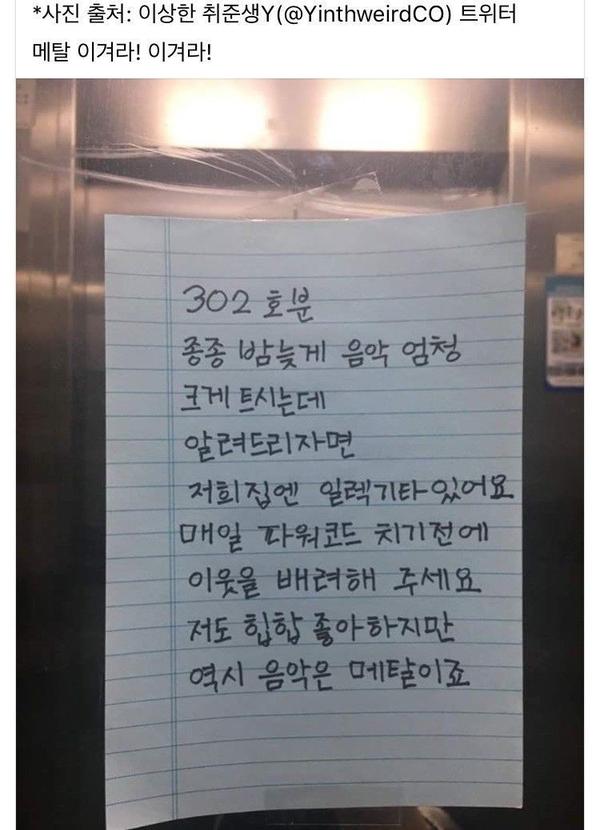 *사진 출처: 이상한 취준생Y(@YinthweirdCO) 트위터
메탈 이겨라! 이겨라!
302 호분
종종 밤늦게 음악 엄청
크게 트시는데
알려드리자면
저희집엔 일렉기타있어요
매일 파워코드 치기전에
이웃을 배려해 주세요
저도 힙합 좋아하지만
역시 음악은 메탈이죠